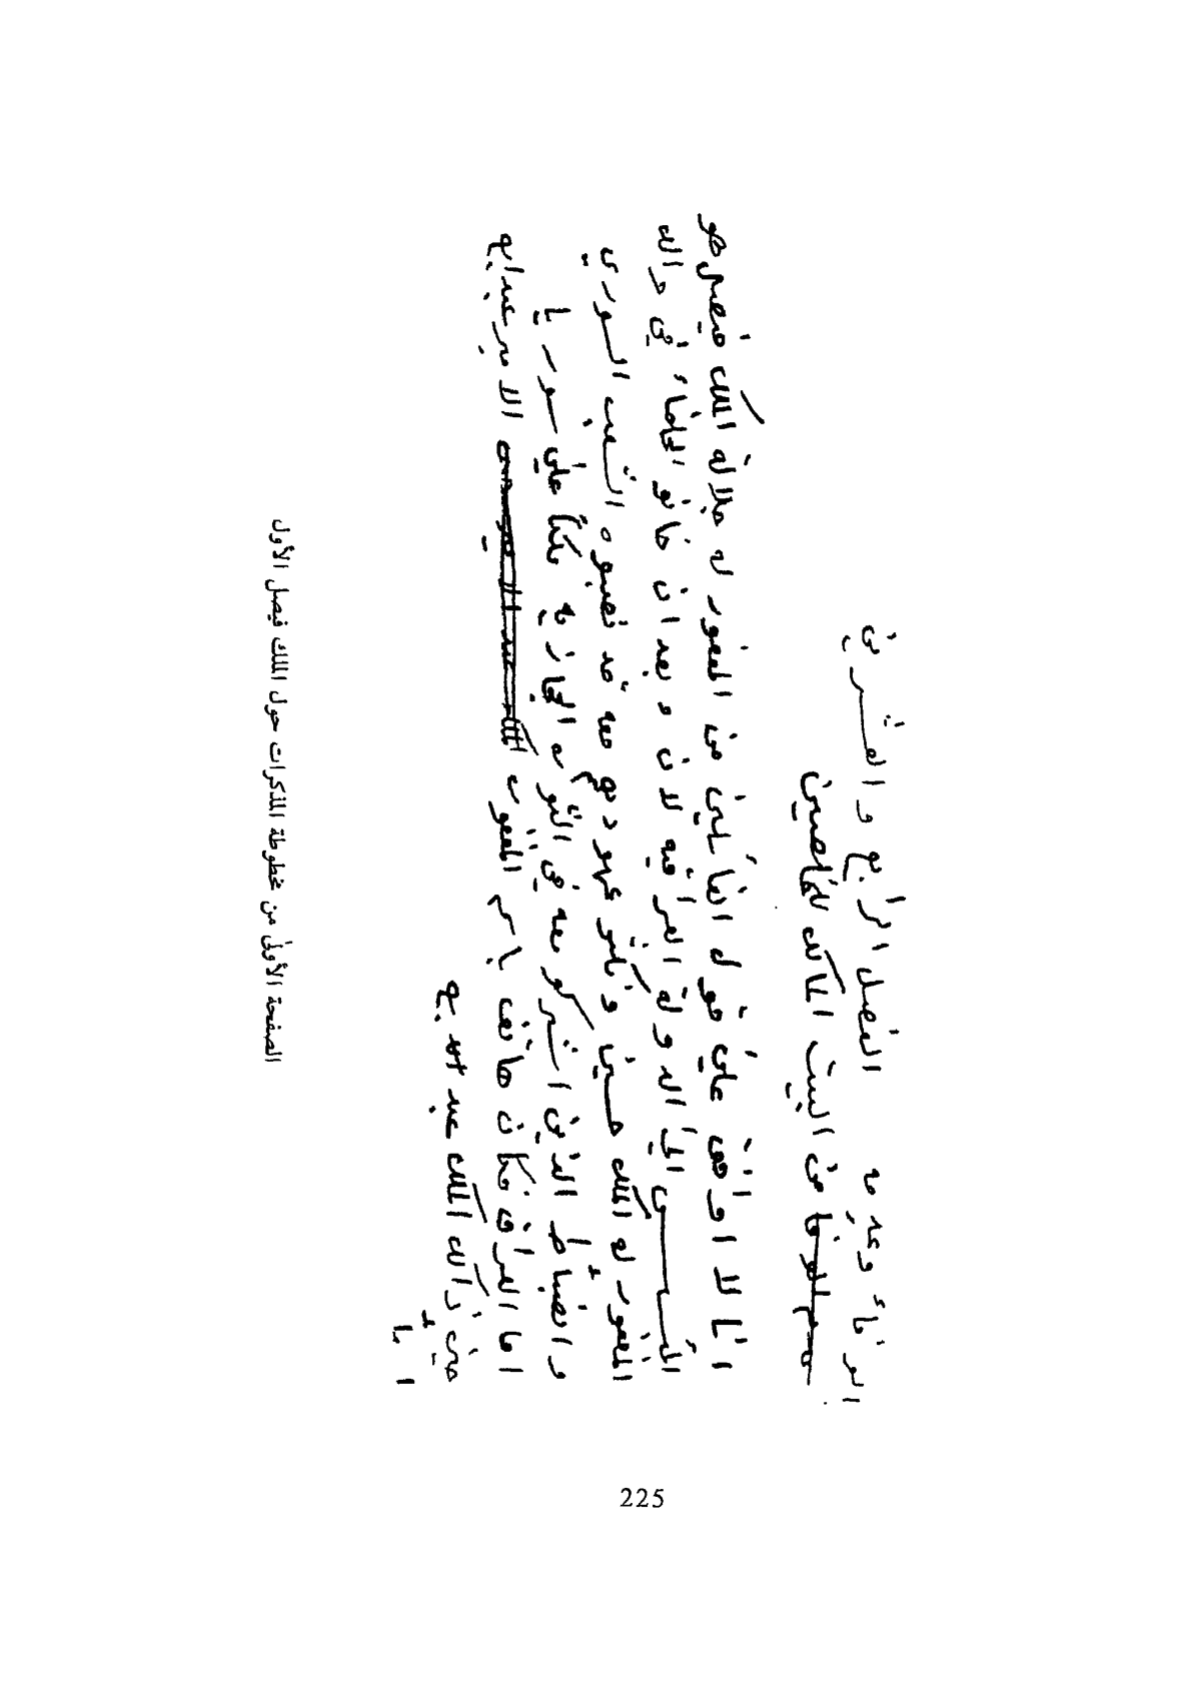 الفصل الرابع والعشرين
الوفاء وعدمه
من البيت المالك للمخلصين
انا لا اوافق على قول القائلين من المغفور له جلالة الملك فيصل هو
المؤسس الى الدولة العراقيه لان وبعد ان خانو الحلفاء في والده
المغفور له الملك حسين ونكثو عهودهم معه قد نصبوه الشعب السوري
والضباط الذين اشتركو معه في الثوره الحجازيه ملكاً على سوريا
اما العراق فكان هاتف باسم المغفور الامير عبدالله
حين ذاك الملك عبدالله
اما
الصفحة الأولى من مخطوطة المذكرات حول الملك فيصل الأول
225